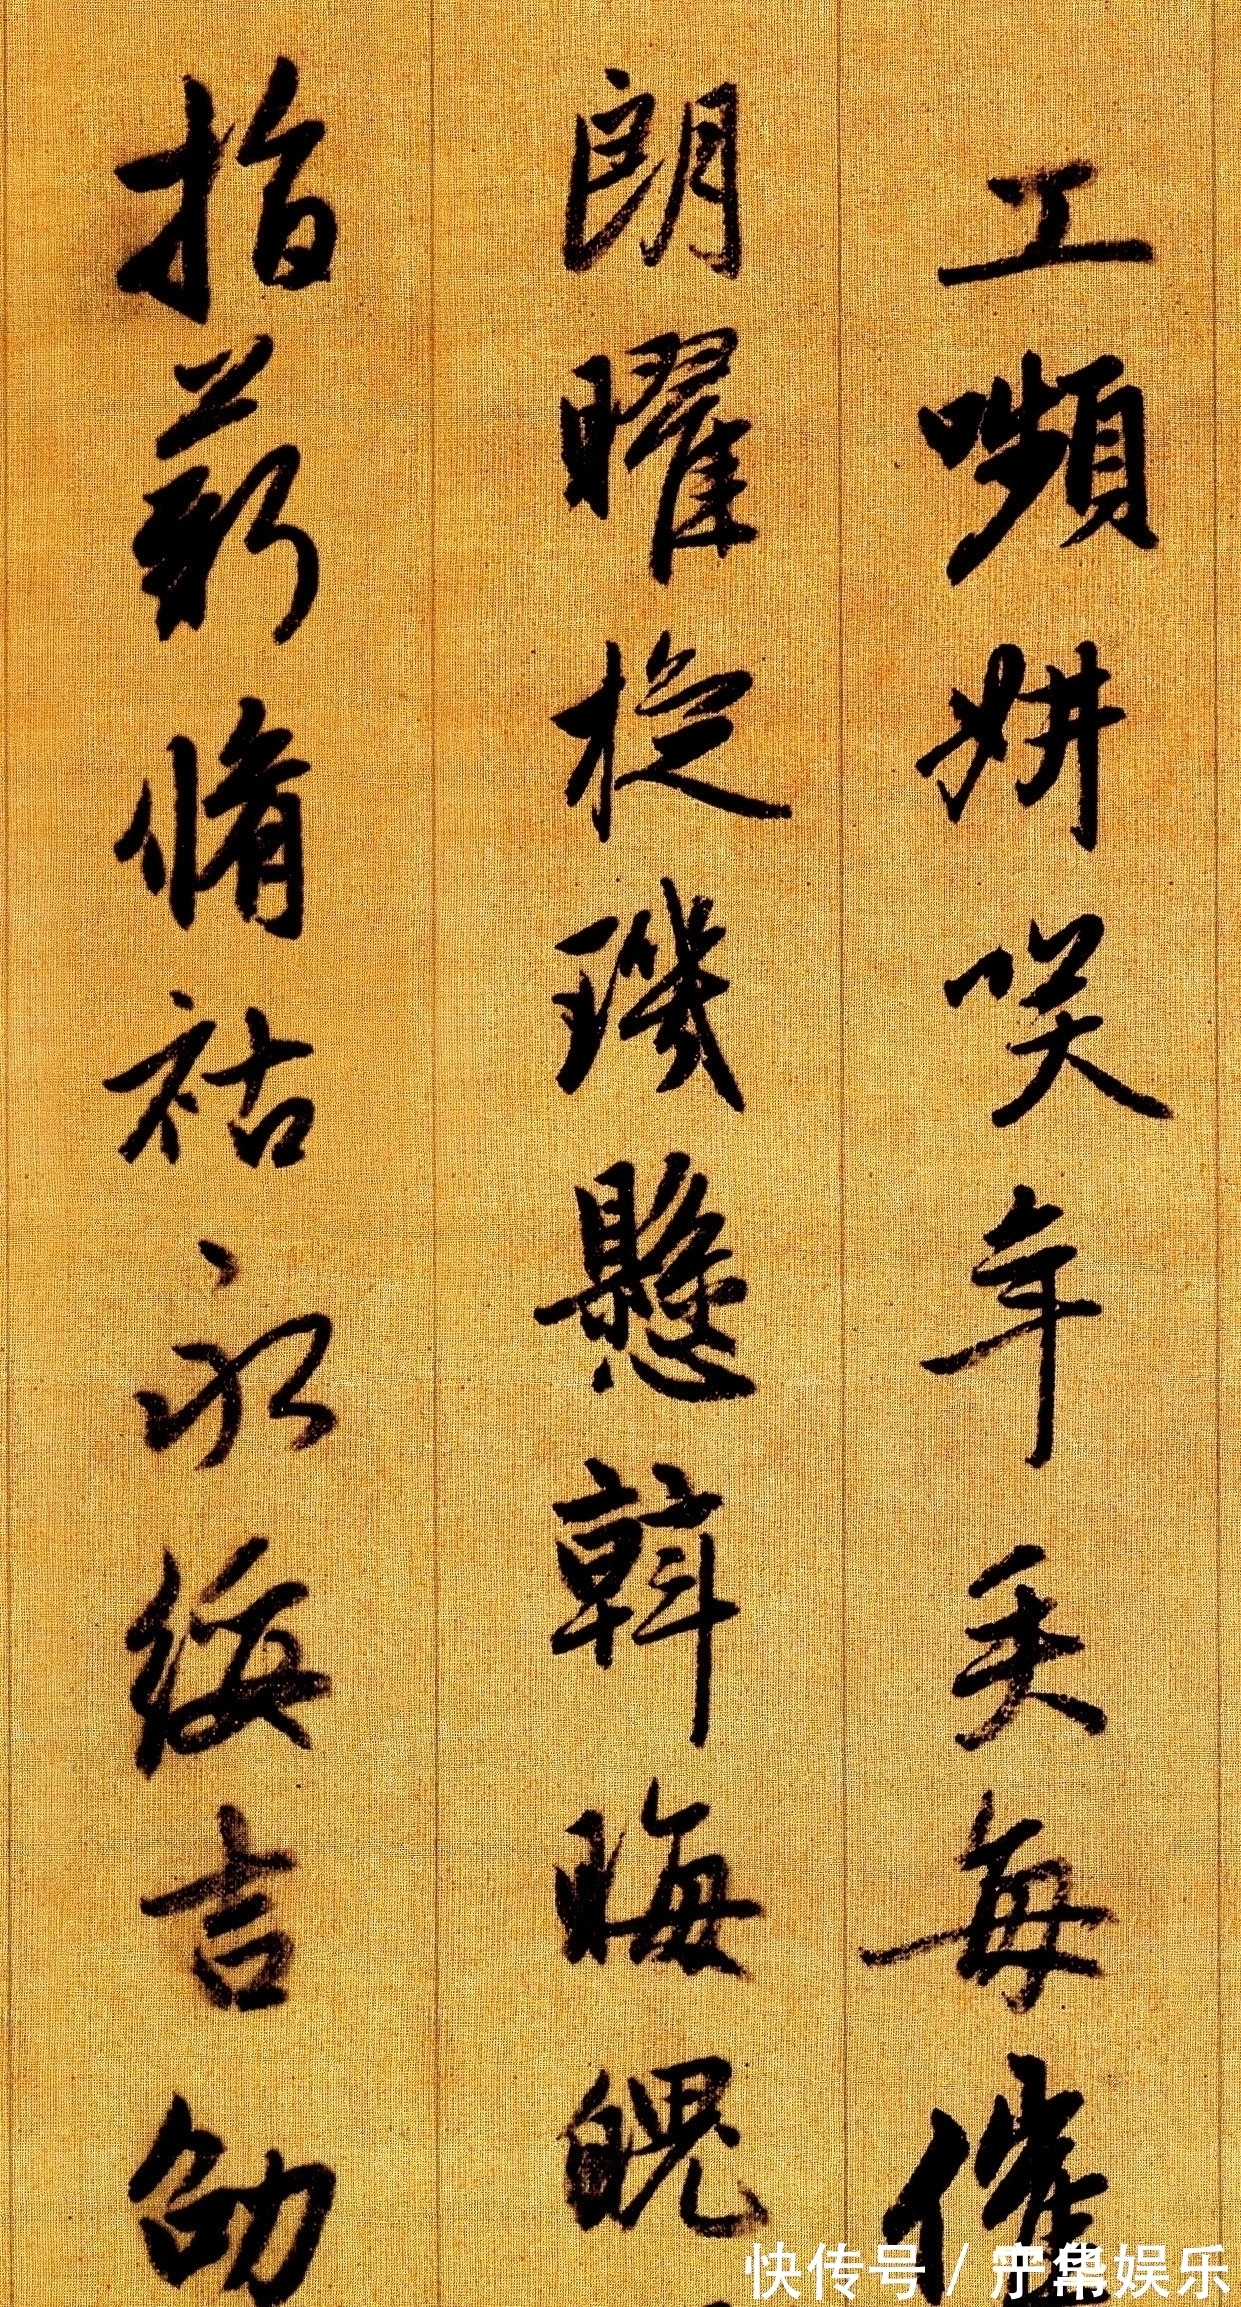 工嚬妍笑年矢每催
朗曜旋璣懸斡晦魄
指薪脩祜永綏吉劭
快传号／
娱乐